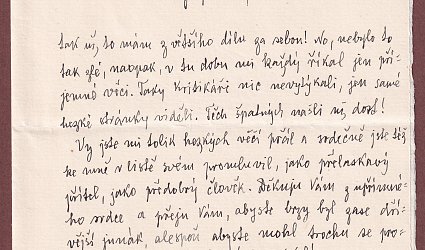 tak už, to mám z většího dílu za sebou! No, nebylo to
tak zlé, naopak, v tu dobu mi každý říkal jen pří-
jemné věci. Taky kritikáři nic nevytýkali, jen samé
hezké stránky viděli. Těch špatných našli už dost!
Vy jste mi tolik hezkých věcí přál a srdečně jste též
ke mně v listě svém promluvil, jako přelaskavý
přítel, jako předobrý člověk. Děkuju Vám z upřímné-
ho srdce a přeju Vám, abyste brzy byl zase dří-
vější junák, alespoň abyste mohl trochu se pro-